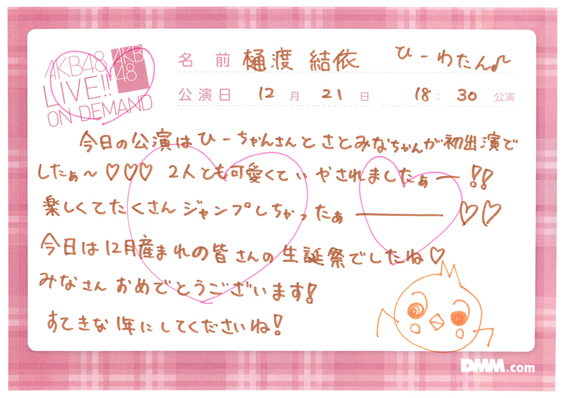 AKB48
LIVE!!
ON DEMAND
AKB
48
名前 樋渡 結依 ひーわたん♪
公演日 12月21日 18:30公演
今日の公演はひーちゃんさんとさとみなちゃんが初出演で
したぁ〜♡♡♡ 2人とも可愛くていやされましたぁー!!
楽しくてたくさんジャンプしちゃったぁ―――♡♡
今日は12月産まれの皆さんの生誕祭でしたね♡
みなさんおめでとうございます!
すてきな1年にしてくださいね!
DMM.com